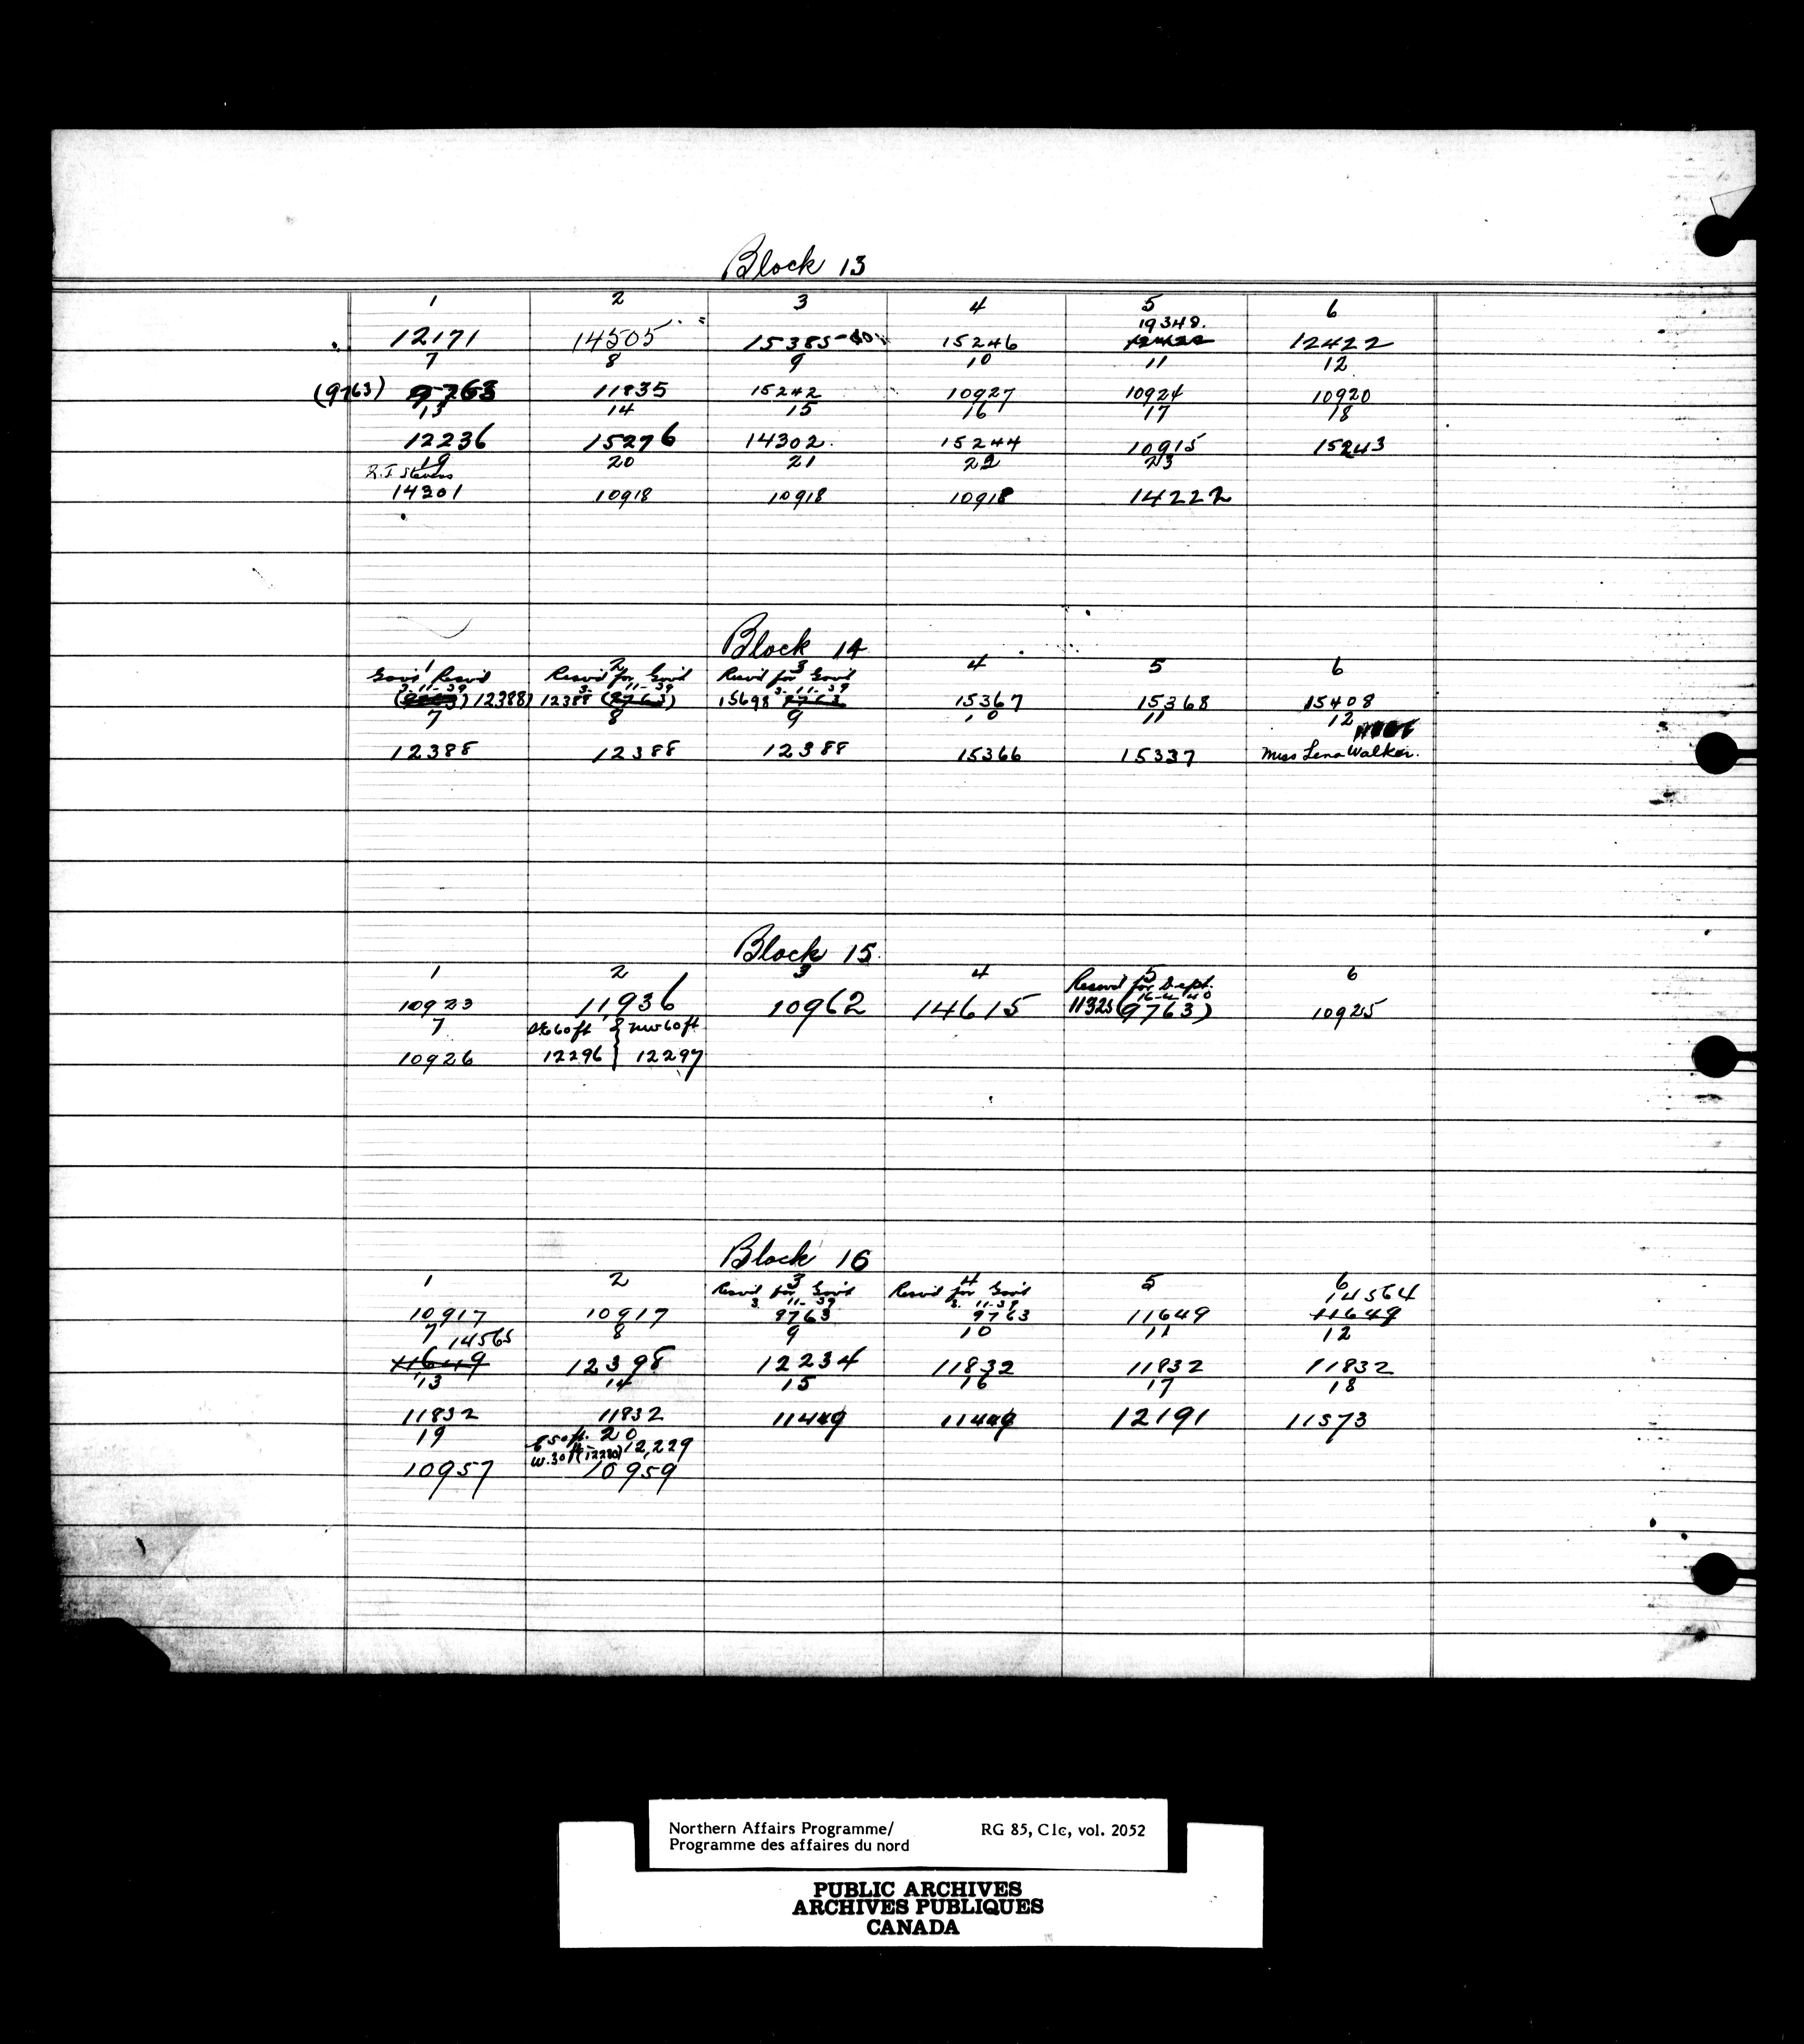 Block 13
1 2 3 4 5 6
19348.
12171 14505 15385 15246 12422 12422
7 8 9 10 11 12
(9763) 9763 11835 15242 10927 10924 10920
13 14 15 16 17 18
12236 15276 14302. 15244 10915 15243
19 20 21 22 23
Stevens
14301 10918 10918 10918 14222
Block 14
1 2 3 4 5 6
Gov't Resv'd Resv'd for Gov't Resv'd for Gov't
3-11-39 3-11-39 3-11-39
12388) 12388 (9763) 15698 9763 15367 15368 15408
7 8 9 10 11 12
12388 12388 12388 15366 15337 Miss Lena Walker.
Block 15
1 2 3 4 5 6
Resvd for Dept.
16-4-40
10923 11936 10962 14615 11325 (9763) 10925
7 8
SE 60 ft NW 60 ft
10926 12296 12297
Block 16
1 2 3 4 5 6
Resv'd for Gov't Resv'd for Gov't 14564
3. 11-39 3. 11-39
10917 10917 9763 9763 11649 11649
7 14565 8 9 10 11 12
11649 12398 12234 11832 11832 11832
13 14 15 16 17 18
11832 11832 11449 11449 12191 11573
19 20
E 50 ft. 12,229
W. 30 ft (12230)
10957 10959
Northern Affairs Programme/ RG 85, C1c, vol. 2052
Programme des affaires du nord
PUBLIC ARCHIVES
ARCHIVES PUBLIQUES
CANADA